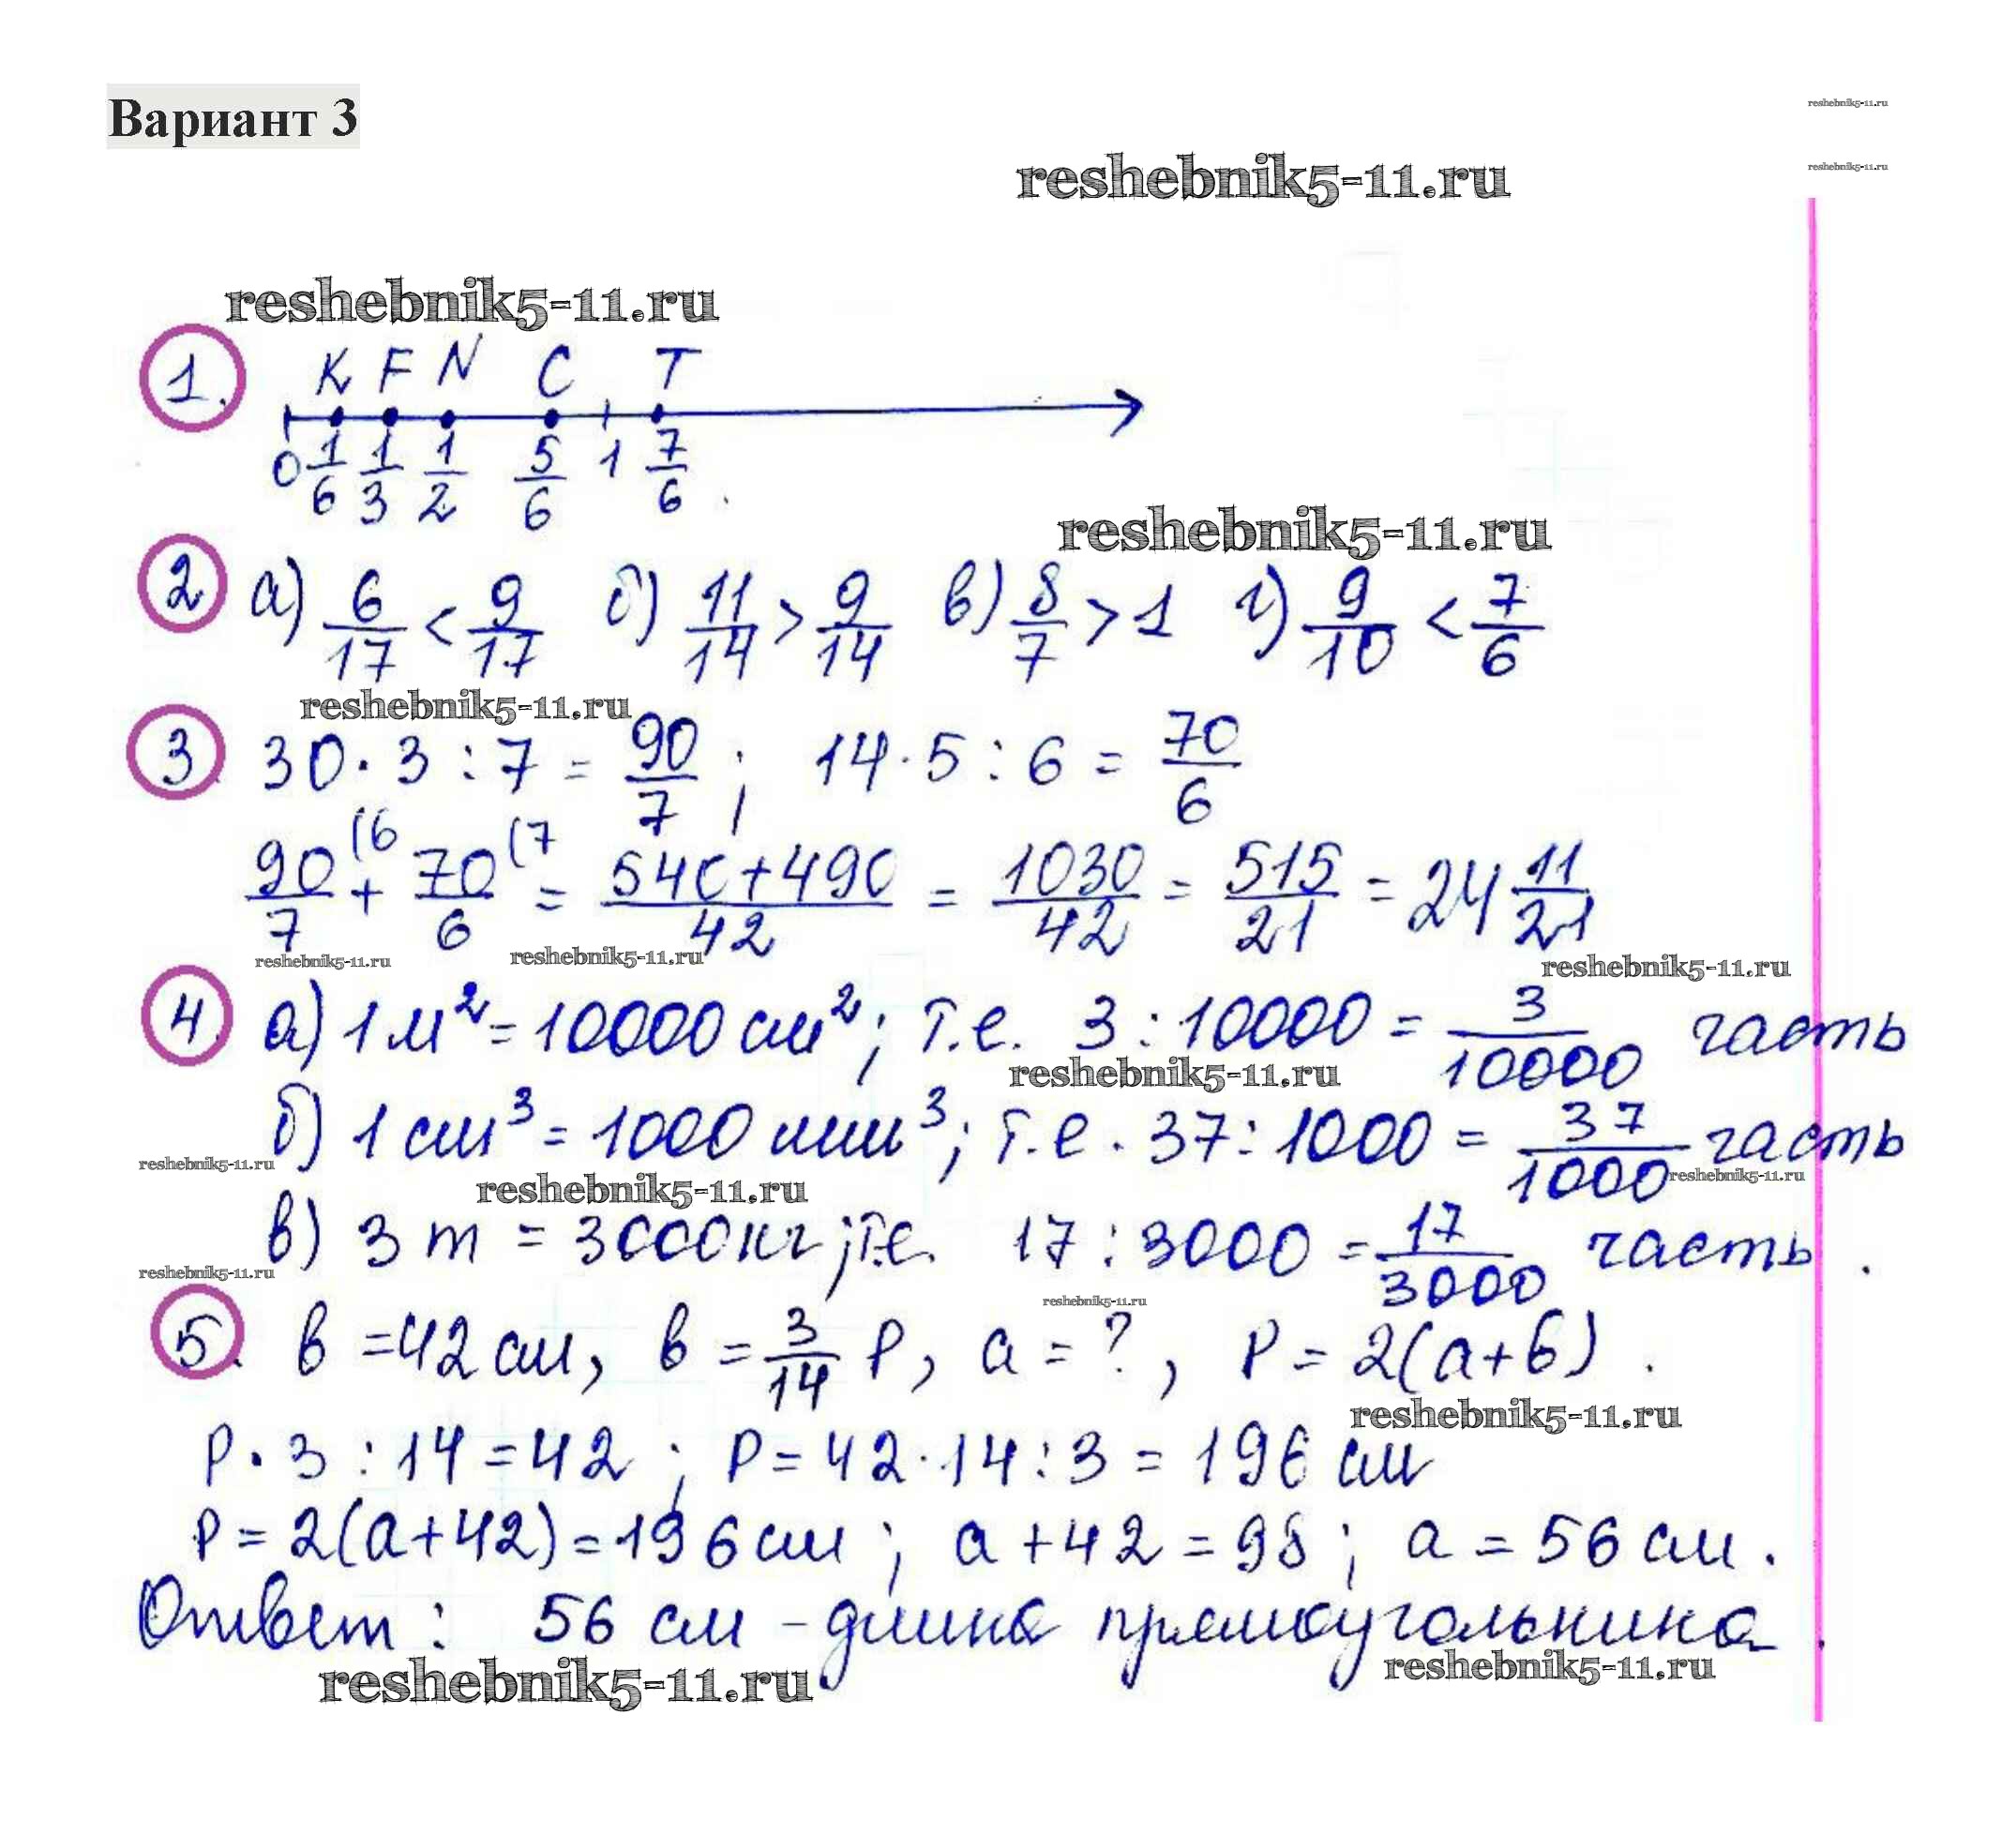 Вариант 3
reshebnik5-11.ru
reshebnik5-11.ru
reshebnik5-11.ru
reshebnik5-11.ru
1. K F N C T
0 1/6 1/3 1/2 5/6 1 7/6
reshebnik5-11.ru
2 а) 6/17 < 9/17 б) 11/14 > 9/14 в) 8/7 > 1 г) 9/10 < 7/6
reshebnik5-11.ru
3. 30 · 3 : 7 = 90/7 ; 14 · 5 : 6 = 70/6
90/7 (6 + 70/6 (7 = 540+490/42 = 1030/42 = 515/21 = 24 11/21
reshebnik5-11.ru reshebnik5-11.ru reshebnik5-11.ru
4. а) 1 м² = 10000 см²; т.е. 3 : 10000 = 3/10000 часть
reshebnik5-11.ru
б) 1 см³ = 1000 мм³; т.е. 37 : 1000 = 37/1000 часть
reshebnik5-11.ru reshebnik5-11.ru reshebnik5-11.ru
в) 3 т = 3000 кг; т.е. 17 : 3000 = 17/3000 часть.
reshebnik5-11.ru reshebnik5-11.ru
5. в = 42 см, в = 3/14 Р, а = ?, Р = 2(а+б).
reshebnik5-11.ru
Р · 3 : 14 = 42 ; Р = 42 · 14 : 3 = 196 см
Р = 2(а+42) = 196 см ; а + 42 = 98 ; а = 56 см.
Ответ : 56 см – длина прямоугольника.
reshebnik5-11.ru reshebnik5-11.ru